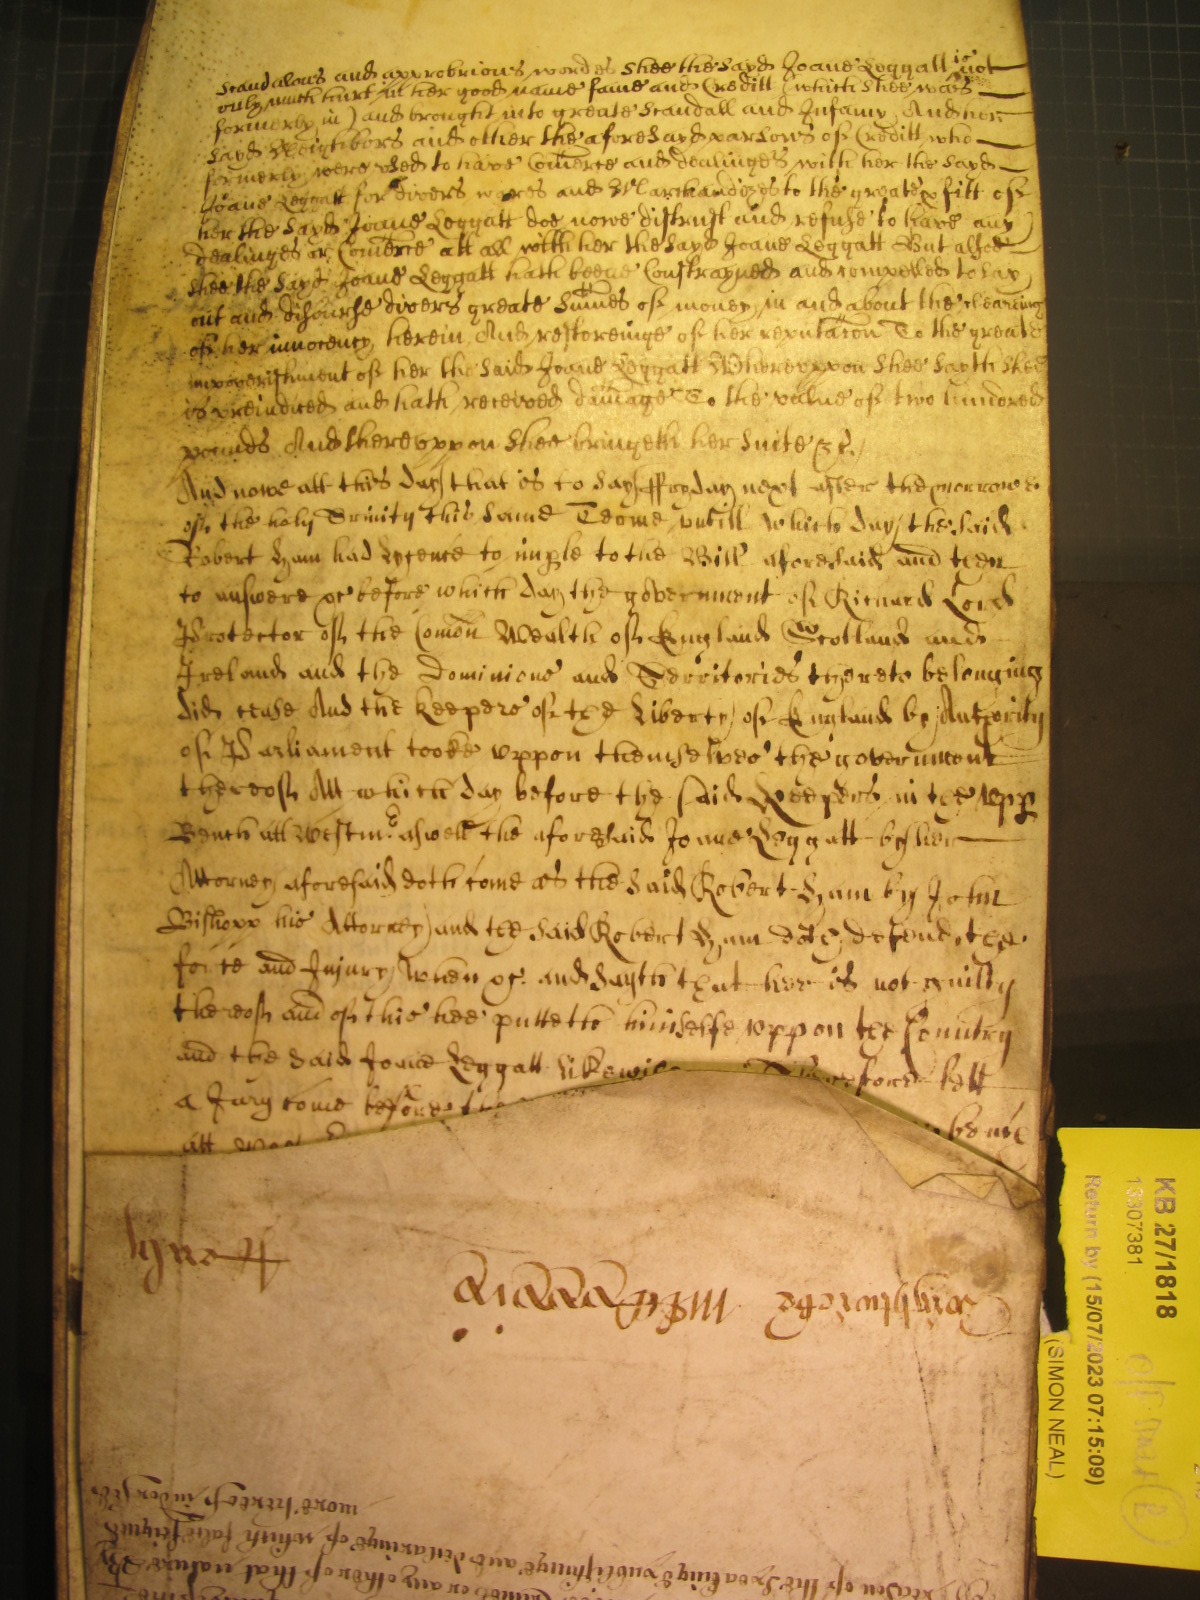 Scandalous and approbrious wordes Shee the sayd Joane Leggatt is not
only much hurt in her good name fame and Creditt (which shee was
formerly in) and brought into greate Scandall and Infamy And her
sayd Neighbors and other the aforesayd parsons of Creditt who
formerly were used to have Comerce and dealinges with her the sayd
Joane Leggatt for divers wares and Marchandizes to the greate pfitt of
her the sayd Joane Leggatt doe nowe distrust and refuse to have any
dealinges or Comerce att all with her the sayd Joane Leggatt But alsoe
shee the sayd Joane Leggatt hath beene Constrayned and compelled to lay
out and disburse divers greate Sumes of money in and about the clearing
of her innocency herein And restoreinge of her reputacon To the greate
impoverishment of her the said Joane Leggatt Whereuppon shee sayth shee
is preiudiced and hath receyved damage To the value of two hundred
pounds And thereuppon shee bringeth her suite &c.
And nowe att this day that is to say ffryday next after the morrowe
of the holy Trinity this same Terme untill which day the said
Robert Ham had Lycence to imple to the Bill aforesaid and then
to answere &c before which day the government of Richard Lord
Protector of the Comon Wealth of England Scotland and
Ireland and the Dominions and Territories thereto belonging
did cease And the Keepers of the Liberty of England by Authority
of Parliament tooke uppon themselves the government
thereof Att which day before the said Keepers in the upp
Bench att Westm aswell the aforesaid Joane Leggatt by her
Attorney aforesaid doth come as the said Robert Ham by John
Bishopp his Attorney and the said Robert Ham doth defend the
force and Injury when &c. and sayth that hee is not guilty
thereof and of this hee putteth himselfe uppon the Country
and the said Joane Leggatt likewise Therefore lett
a Jury come before the
att
KB 27/1818
13307381
Return by (15/07/2023 07:15:09)
(SIMON NEAL)
Wightwicke
more hereof in
reason of the speakinge publishinge and declaringe of which false
or any other of that nature By